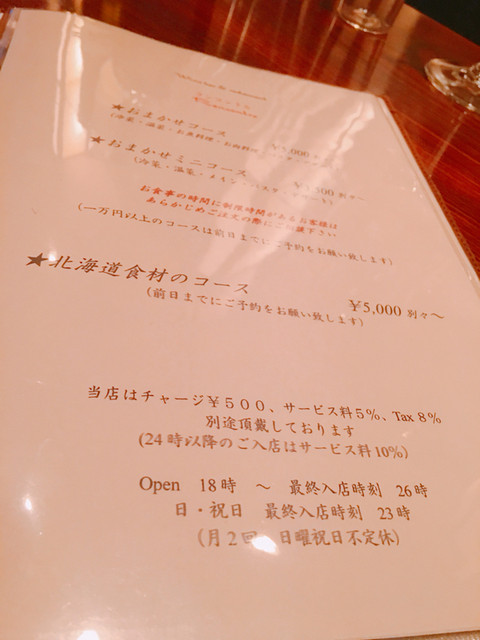 ★おまかせコース
(冷菜・温菜・お魚料理・お肉料理
★おまかせミニコース
(冷菜・温菜・メイン・パスタ・
お食事の時間に制限時間があるお客様は
あらかじめご注文の際にご相談下さい
(一万円以上のコースは前日までにご予約をお願い致します)
★北海道食材のコース ¥5,000 別々～
(前日までにご予約をお願い致します)
当店はチャージ¥500、サービス料5%、Tax 8%
別途頂戴しております
(24時以降のご入店はサービス料10%)
Open 18時 ～ 最終入店時刻 26時
日・祝日 最終入店時刻 23時
(月2回 日曜祝日不定休)